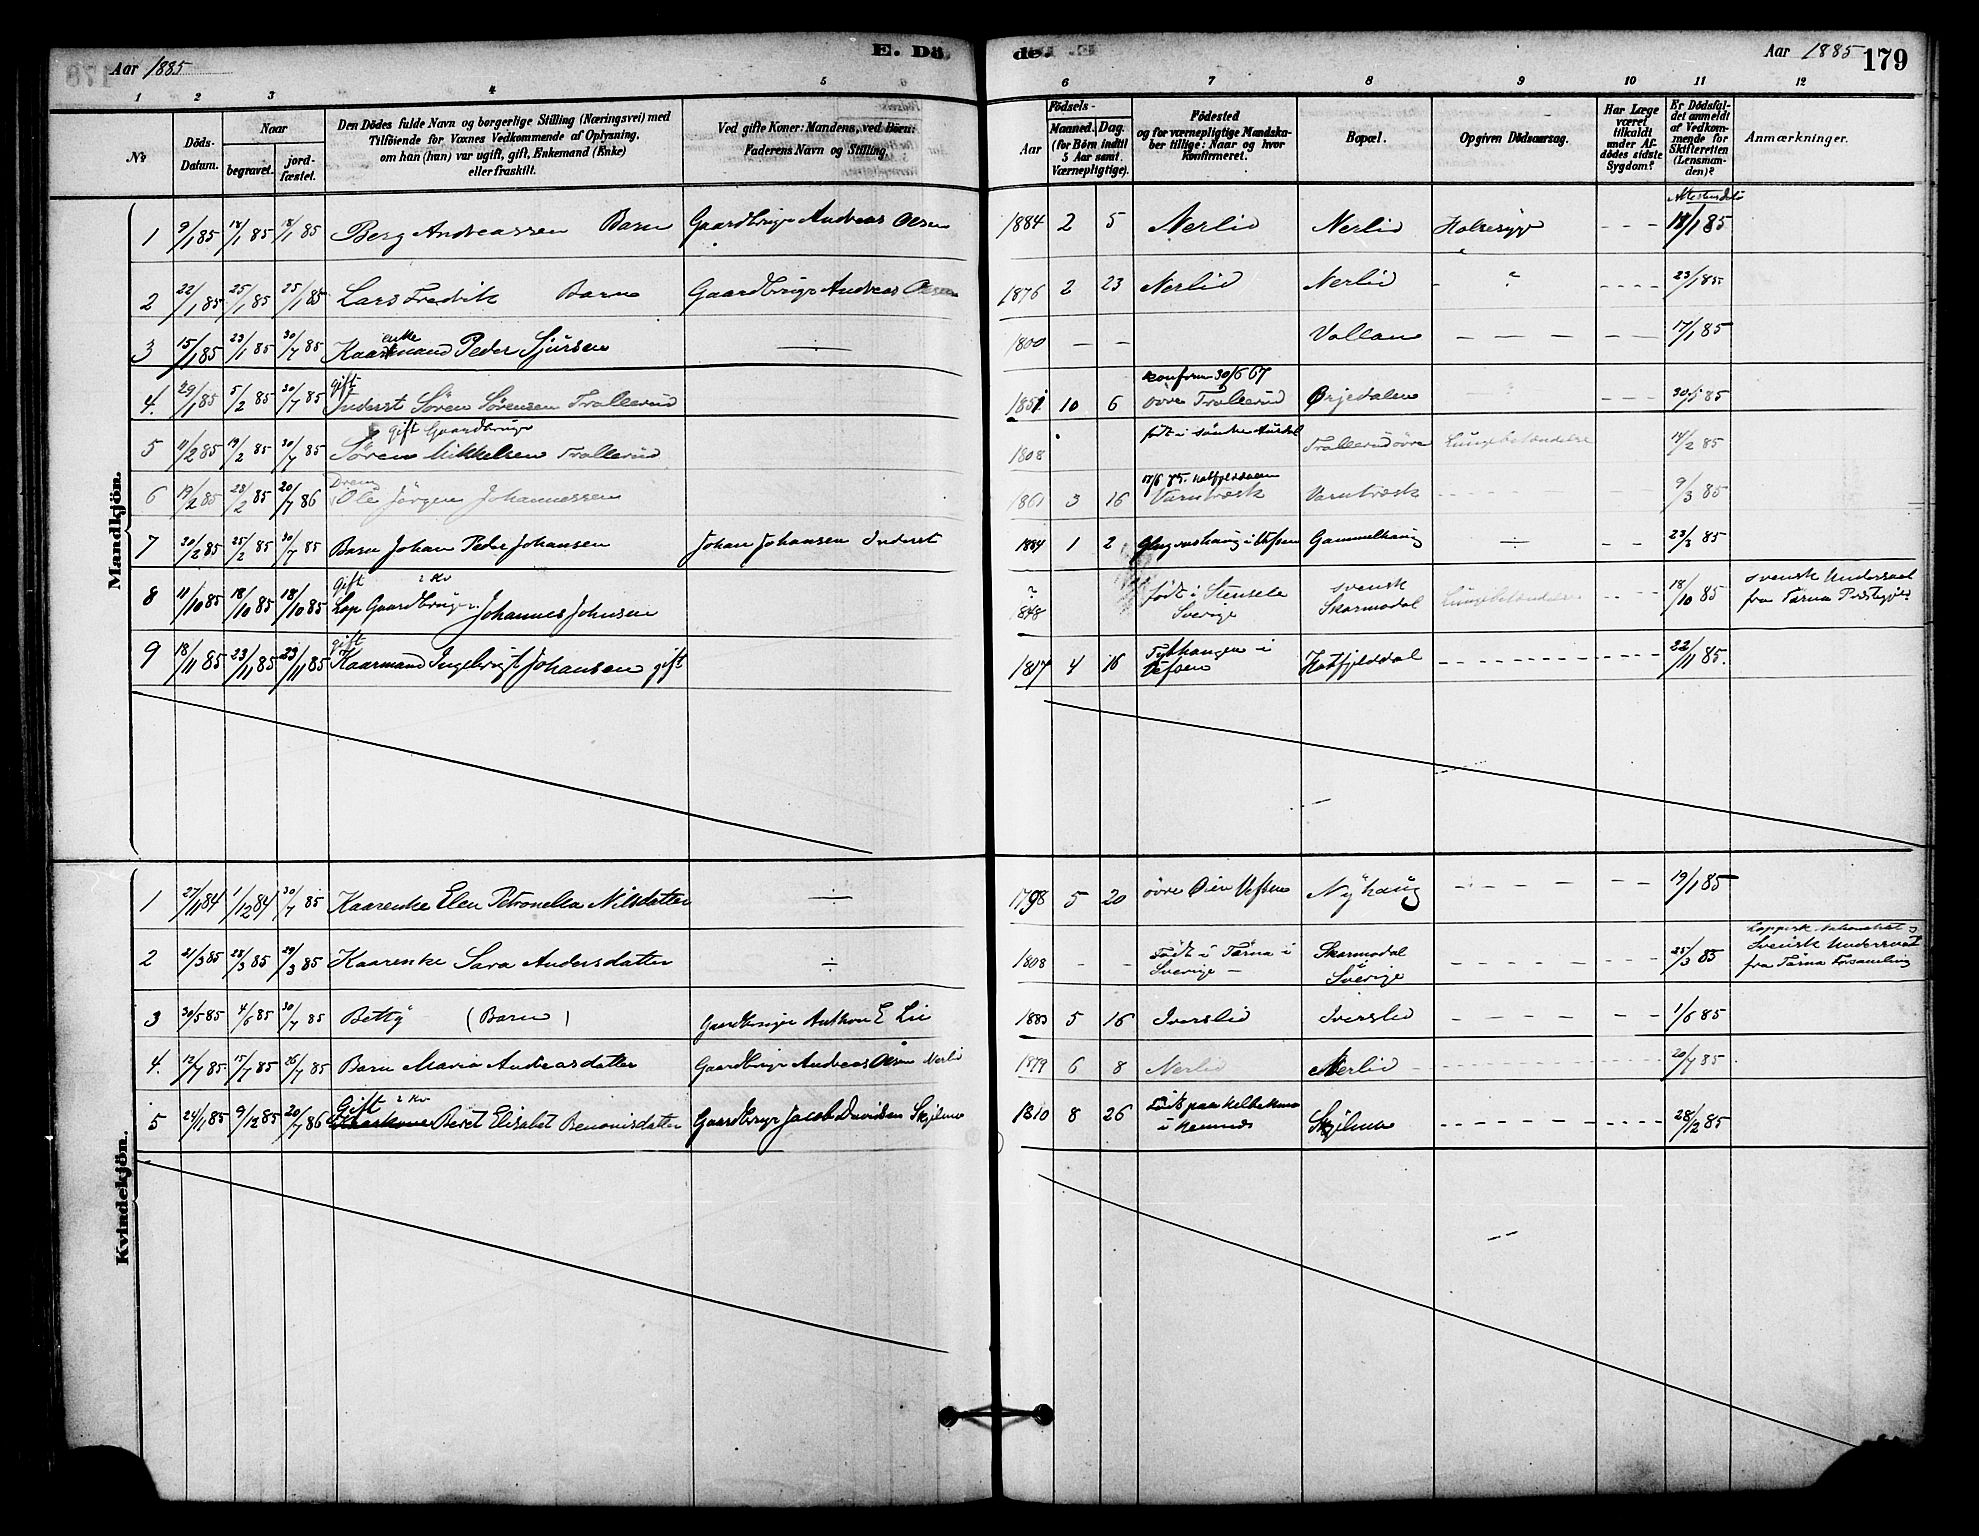 Aar 1885
E. Dö
de.
Aar 1885 179
1 2 3 4 5 6 7 8 9 10 11 12
No
Döds-Datum.
Naar
begravet.
jordfæstet.
Den Dödes fulde Navn og borgerlige Stilling (Næringsvei) med
Tilföiende for Voxnes Vedkommende af Oplysning,
om han (hun) var ugift, gift, Enkemand (Enke)
eller fraskilt.
Ved gifte Koner: Mandens, ved Börn:
Faderens Navn og Stilling.
Födsels-
Aar
Maaned. Dag.
(for Börn indtil
5 Aar samt.
Værnepligtige).
Födested
og for værnepligtige Mandskaber tillige: Naar og hvor
konfirmeret.
Bopæl.
Opgiven Dödsaarsag.
Har Læge
været
tilkaldt
under Afdödes sidste
Sygdom?
Er Dödsfaldet anmeldt
af Vedkommende for
Skifteretten
(Lensmanden)?
Anmærkninger.
Mandkjön.
1 9/1 85 18/1 85 18/1 85 Berg Andreassen Barn Gaardbruger Andreas Olsen 1884 2 5 Nerlid Nerlid Halsesyge - - - 18/1 85
2 22/1 85 25/1 85 25/1 85 Lars Fredrik Barn Gaardbruger Andreas Olsen 1876 2 23 Nerlid Nerlid - - - - 23/1 85
enke
3 15/1 85 23/1 85 30/7 85 Kaarmand Peder Sjursen 1800 - - Vollan - - - - 17/1 85
gift
konfirm 30/6 67
4. 29/1 85 5/2 85 30/7 85 Inderst Sören Sörensen Trallerud 1851 10 6 övre Trallerud Ørjedalen - - - 30/5 85
gift Gaardbruger
födt i söndre Aurdal
5 11/2 85 19/2 85 30/7 85 Sören Mikkelsen Trallerud 1808 Trallerud övre Lungebetændelse 14/2 85
Dreng
17/6 75. Hatfjelddalen
6 19/2 85 28/2 85 20/7 86 Ole Jörgen Johannessen 1861 3 16 Varntræsk Varntræsk - - - 9/3 85
7 20/2 85 25/2 85 30/7 85 Barn Johan Peder Johansen Johan Johansen Inderst 1884 1 2 Vefsen Gammelhaug ÷ - - 23/3 85
gift 2 Kv
8 11/10 85 18/10 85 18/10 85 Lap Gaardbruger Johannes Johnsen ? 848 födt i Stensele Sverige svensk Skarmodal Lungebetændelse - - - 18/10 85 svensk Undersaat fra Tärna Præstegjeld
gift
9 18/11 85 23/11 85 23/11 85 Kaarmand Ingebrigt Johansen gift 1817 4 16 i Vefsen Hatfjelddal - - - 22/11 85.
Kvindekjön.
1 27/11 84 1/12 84 30/7 85 Kaarenke Elen Petronella Nilsdatter ÷ 1798 5 20 övre Øien Vefsen Nyhaug - - - 19/1 85
2 21/3 85 28/3 85 29/3 85 Kaarenke Sara Andersdatter ÷ 1808 - - Födt i Tärna i Sverige - Skarmodal i Sverige - - - 25/3 85 Lappisk Nationalitet Svensk Undersaat fra Tärna Forsamling
3 30/5 85 4/6 85 30/7 85 Betty (Barn) Gaardbruger Anthon E Lie 1883 5 16 Iverslid Iverslid - - - 1/6 85
4. 12/7 85 15/7 85 26/7 85 Barn Maria Andreasdatter Gaardbruger Andreas Olsen Nerlid 1879 6 8 Nerlid Nerlid - - - 20/7 85
Gift 2 Kv
5 24/11 85 9/12 85 20/7 86 Beret Elisabet Benonisdatter Gaardbruger Jacob Davidsen Skjelmo 1810 8 26 Födt paa i Hemnes Skjelmo - - - 28/12 85